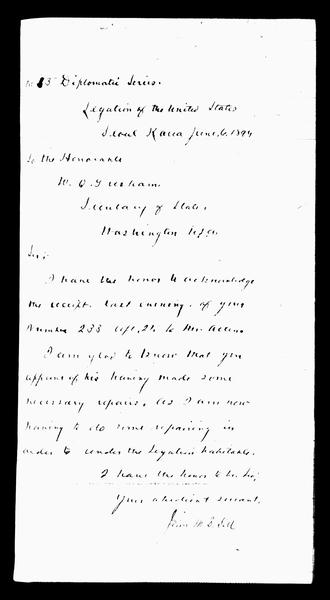 No 13 Diplomatic Series.
Legation of the United States
Seoul Korea June, 6. 1894
To the Honorable
W. Q. Gresham.
Secretary of State.
Washington
Sir;
I have the honor to acknowledge
the receipt, last evening, of your
Number 233 to Mr.
I am glad to know that you
approve of his having made some
necessary repairs, as I am now
having to do some repairing in
order to render the Legation habitable.
I have the honor to be Sir;
Your obedient servant.